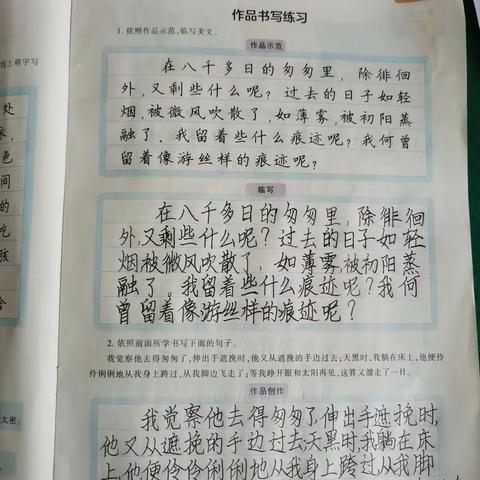 作品书写练习
1. 依照作品示范,临写美文。
作品示范
在八千多日的匆匆里,除徘徊
外,又剩些什么呢?过去的日子如轻
烟,被微风吹散了,如薄雾,被初阳蒸
融了。我留着些什么痕迹呢?我何曾
留着像游丝样的痕迹呢?
临写
在八千多日的匆匆里,除徘徊
外,又剩些什么呢?过去的日子如轻
烟被微风吹散了,如薄雾,被初阳蒸
融了。我留着些什么痕迹呢?我何
曾留着像游丝样的痕迹呢?
2. 依照前面所学书写下面的句子。
我觉察他去得匆匆了,伸出手遮挽时,他又从遮挽的手边过去;天黑时,我躺在床上,他便伶
伶俐俐地从我身上跨过,从我脚边飞走了;等我睁开眼和太阳再见,这算又溜走了一日。
作品创作
我觉察他去得匆匆了,伸出手遮挽时,
他又从遮挽的手边过去;天黑时,我躺在床
上,他便伶伶俐俐地从我身上跨过,从我脚
线上将字写
处
色
间
的
吃
孩
太密。